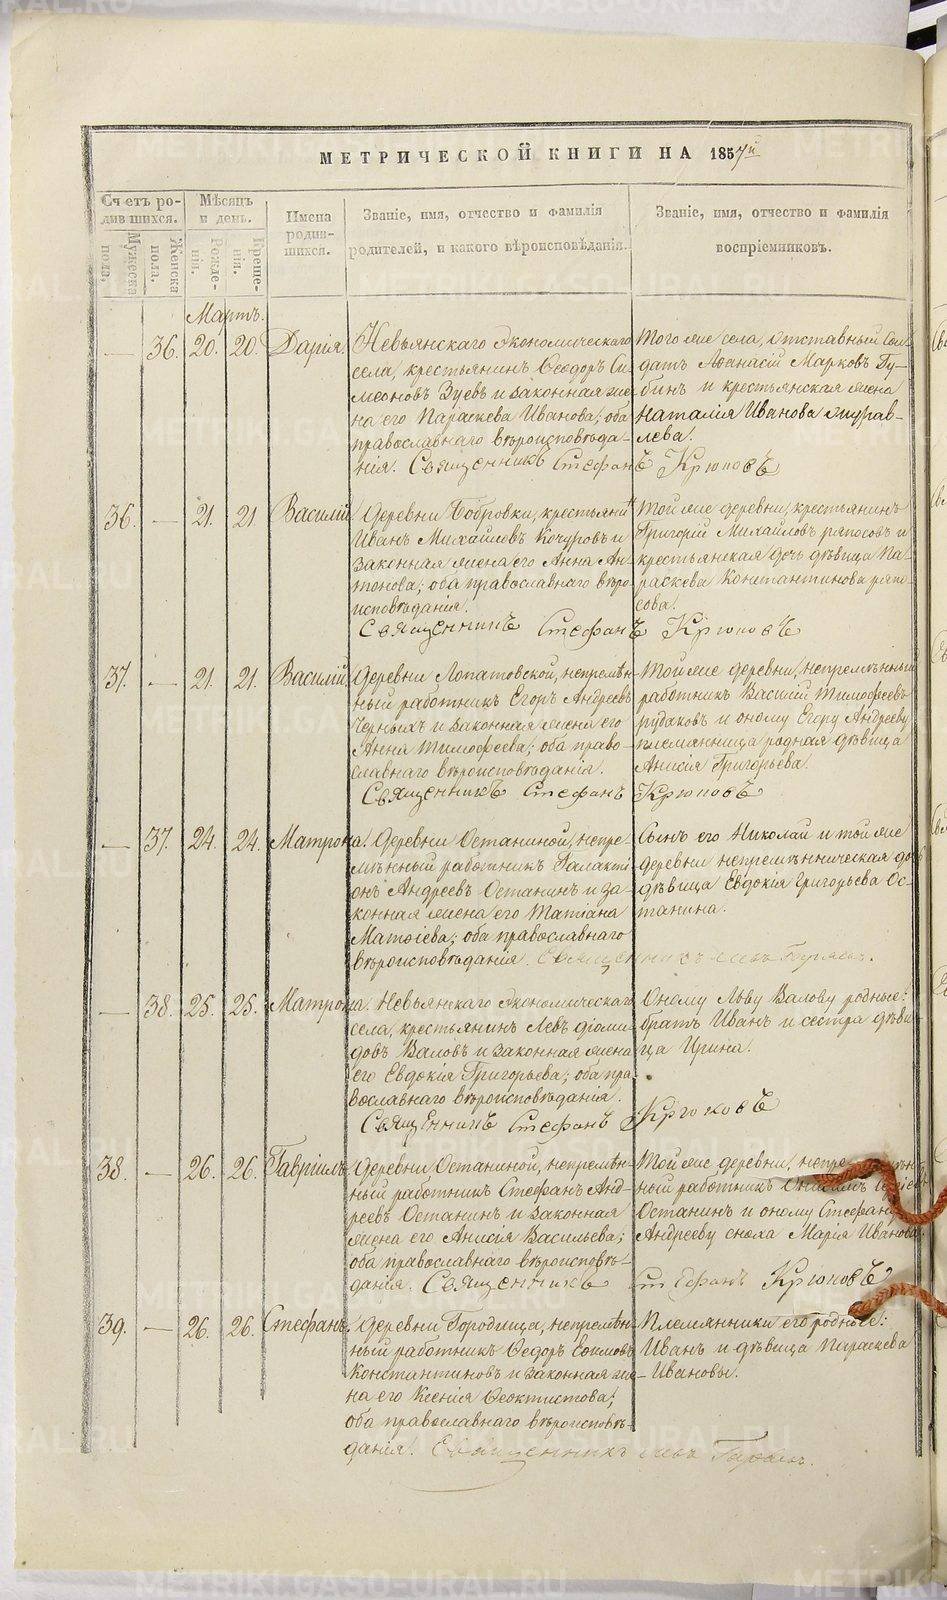 МЕТРИЧЕСКОЙ КНИГИ НА 1857й
Счетъ ро-
дившихся.
Мужеска
пола.
Женска
пола.
Мѣсяцъ
и день.
Рожде-
нія.
Креще-
нія.
Имена
родив-
шихся.
Званіе, имя, отчество и фамилія
родителей, и какого вѣроисповѣданія.
Званіе, имя, отчество и фамилія
воспріемниковъ.
Мартъ.
— 36. 20. 20. Дарія.
Невьянскаго Экономическаго
села, крестьянинъ Ѳеодоръ Си-
меоновъ Зуевъ и законная же-
на его Параскева Иванова; оба
православнаго вѣроисповѣда-
нія. Священникъ Стефанъ Крюковъ
Того же села, отставный сол-
датъ Аѳанасій Марковъ Гу-
бинъ и крестьянская жена
Наталія Иванова Журав-
лева.
36. — 21. 21. Василій
Деревни Бобровки, крестьянинъ
Иванъ Михайловъ Кочуровъ и
законная жена его Анна Ан-
тонова; оба православнаго вѣро-
исповѣданія.
Священникъ Стефанъ Крюковъ
Той же деревни, крестьянинъ
Григорій Михайловъ Ряпосовъ и
крестьянская дочь дѣвица Па-
раскева Константинова Ряпо-
сова.
37. — 21. 21. Василій.
Деревни Лопатовской, непремѣн-
ный работникъ Егоръ Андреевъ
Черныхъ и законная жена его
Анна Тимофеева; оба право-
славнаго вѣроисповѣданія.
Священникъ Стефанъ Крюковъ
Той же деревни, непремѣнный
работникъ Василій Тимофеевъ
Рудаковъ и оному Егору Андрееву
племянница родная дѣвица
Анисія Григорьева.
— 37. 24. 24. Матрона.
Деревни Останиной, непре-
мѣнный работникъ Галакті-
онъ Андреевъ Останинъ и за-
конная жена его Татіана
Матѳіева; оба православнаго
вѣроисповѣданія. Священникъ Левъ
Сынъ его Николай и той же
деревни непремѣнническая дочь
дѣвица Евдокія Григорьева Ос-
танина.
— 38. 25. 25. Матрона.
Невьянскаго Экономическаго
села, крестьянинъ Левъ Діоми-
довъ Валовъ и законная жена
его Евдокія Григорьева; оба пра-
вославнаго вѣроисповѣданія.
Священникъ Стефанъ Крюковъ
Оному Льву Валову родные:
братъ Иванъ и сестра дѣви-
ца Ирина.
38. — 26. 26. Гавріилъ.
Деревни Останиной, непремѣн-
ный работникъ Стефанъ Анд-
реевъ Останинъ и законная
жена его Анисія Васильева;
оба православнаго вѣроисповѣ-
данія. Священникъ Стефанъ Крюковъ
Той же деревни,
ный работникъ
Останинъ и оному Стефану
Андрееву сноха Марія Иванова.
39. — 26. 26. Стефанъ.
Деревни Городища, непремѣн-
ный работникъ Ѳедоръ Еѳимовъ
Константиновъ и законная же-
на его Ксенія Ѳеоктистова;
оба православнаго вѣроисповѣ-
данія. Священникъ Левъ
Племянники его родные:
Иванъ и дѣвица Параскева
Ивановы.
METRIKI.GASO-URAL.RU